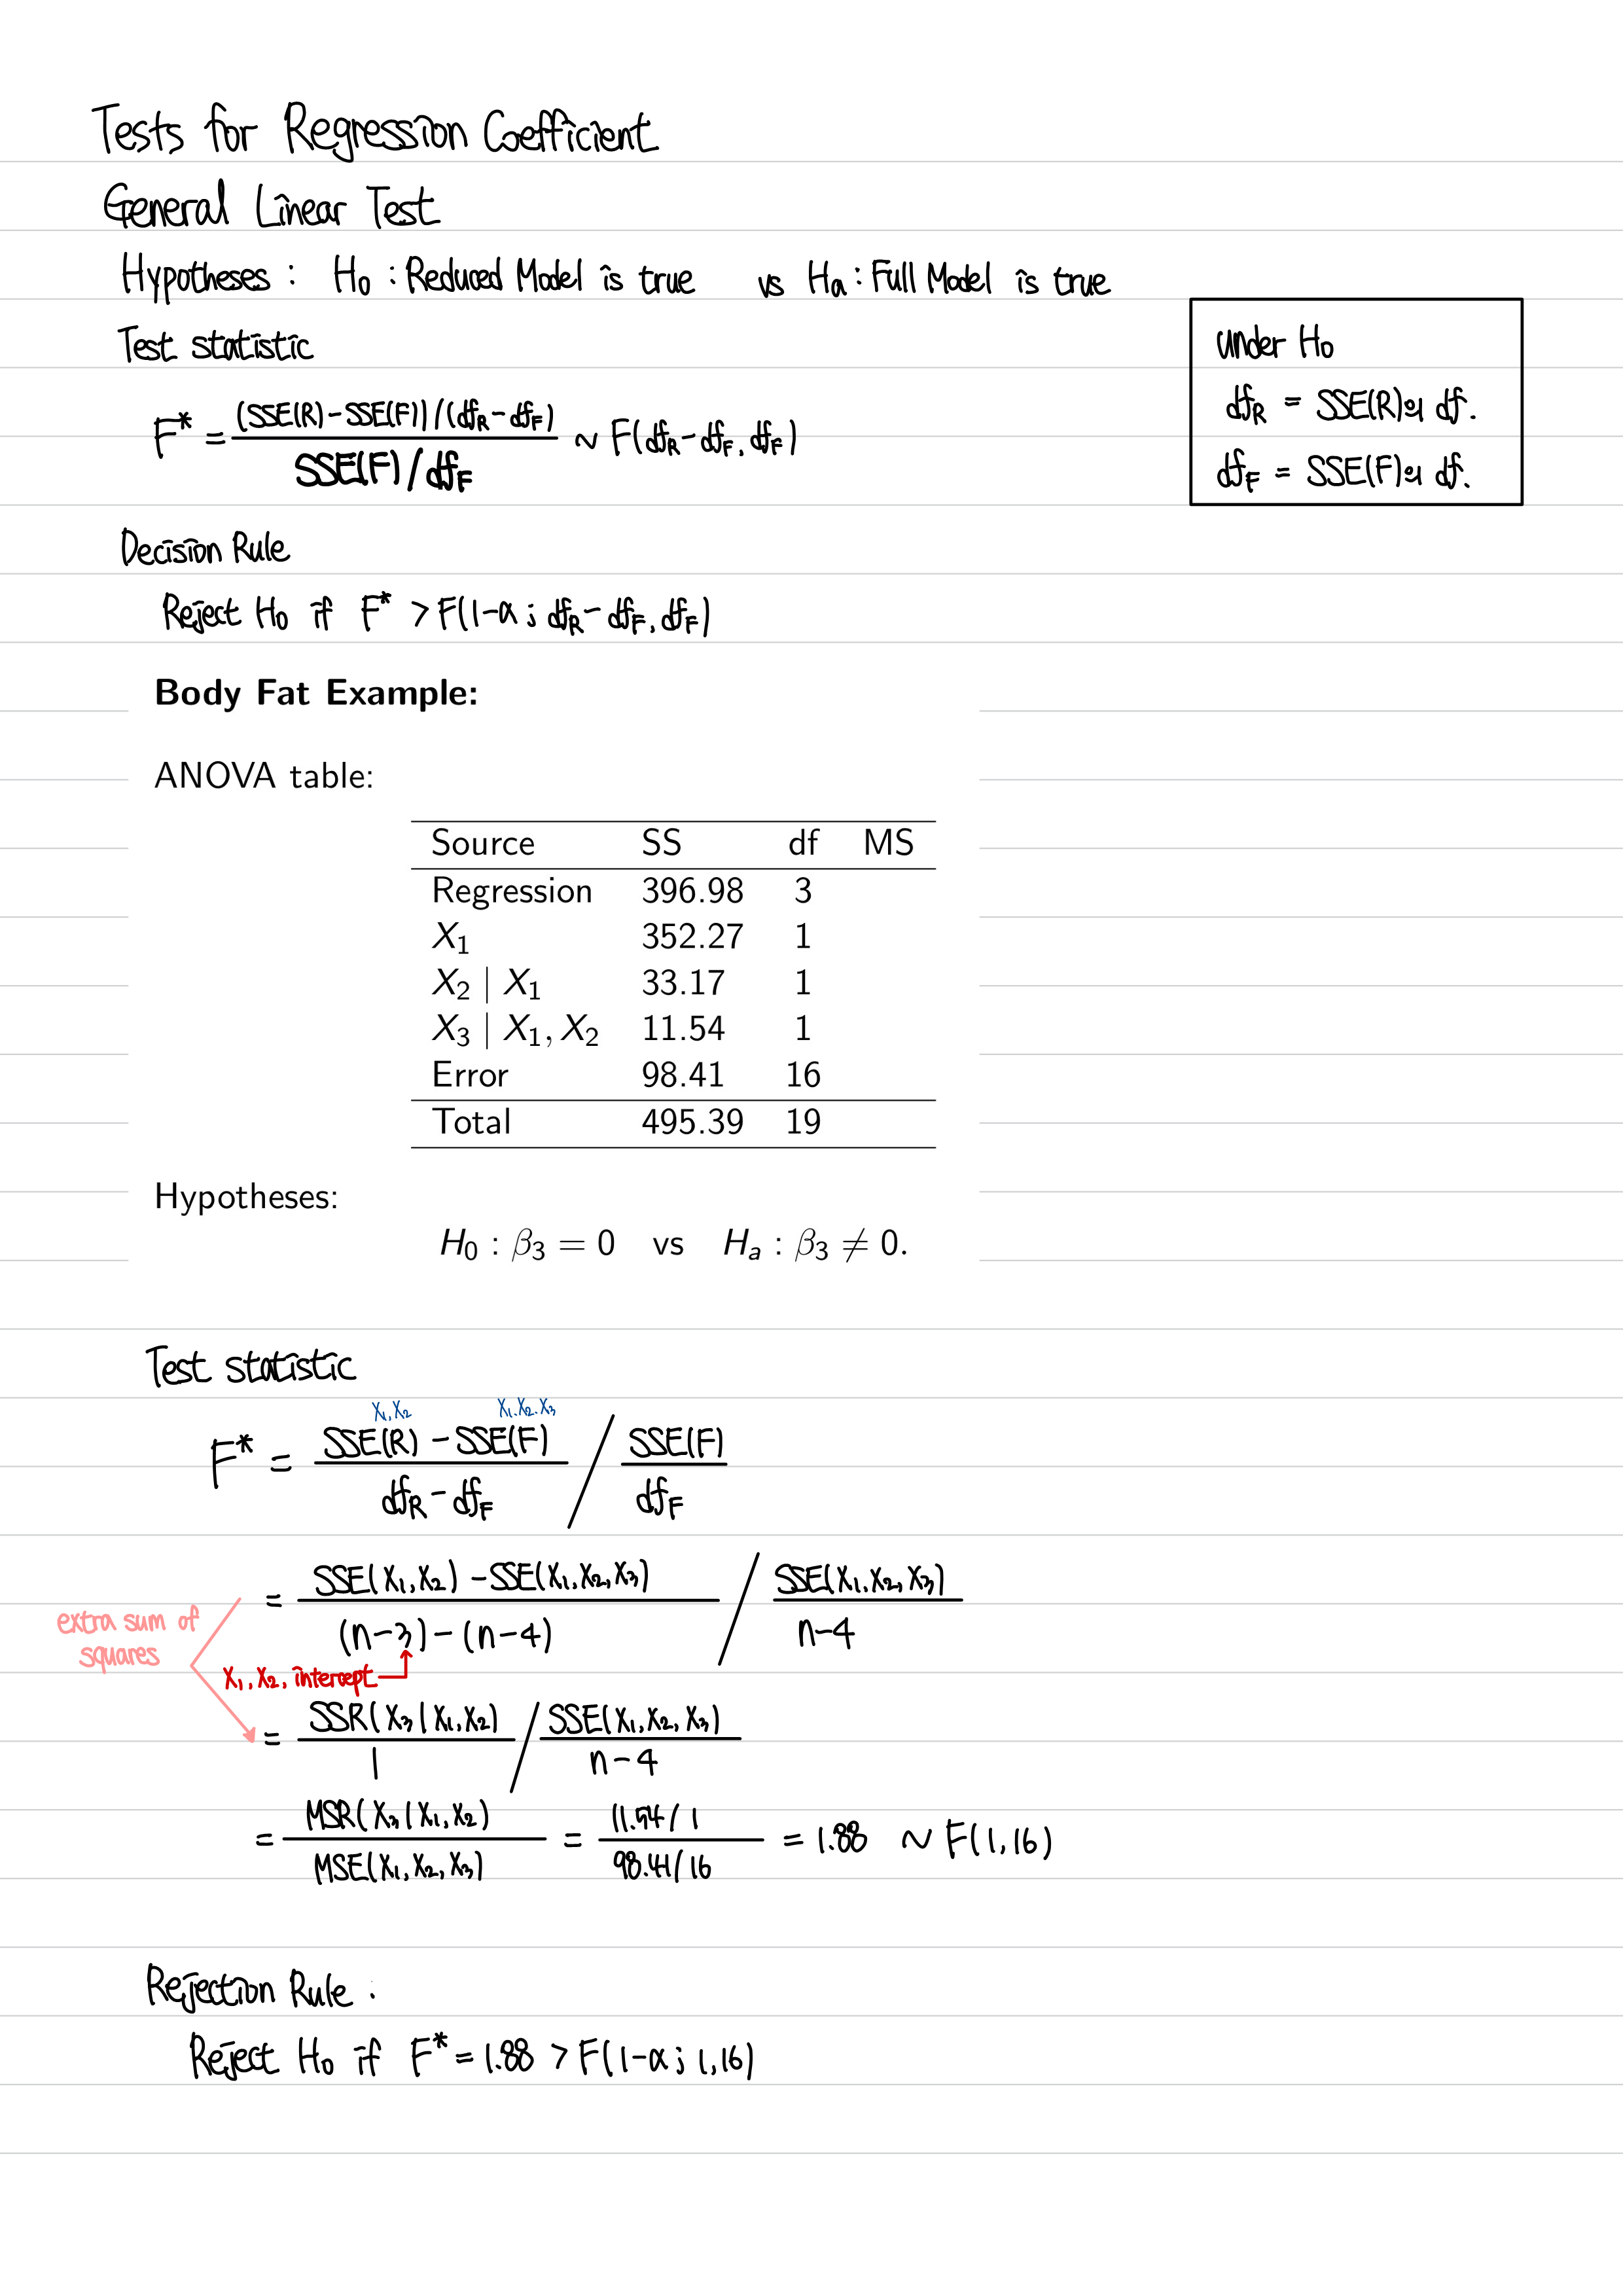 Tests for Regression Coefficient
General Linear Test
Hypotheses : H₀ : Reduced Model is true vs Hₐ : Full Model is true
Test statistic
F* = (SSE(R) - SSE(F)) / (df_R - df_F) / SSE(F) / df_F ~ F(df_R - df_F, df_F)
under H₀
df_R = SSE(R)의 df.
df_F = SSE(F)의 df.
Decision Rule
Reject H₀ if F* > F(1-α ; df_R - df_F, df_F)
Body Fat Example:
ANOVA table:
Source SS df MS
Regression 396.98 3
X₁ 352.27 1
X₂ | X₁ 33.17 1
X₃ | X₁, X₂ 11.54 1
Error 98.41 16
Total 495.39 19
Hypotheses:
H₀ : β₃ = 0 vs Hₐ : β₃ ≠ 0.
Test statistic
X₁, X₂ X₁, X₂, X₃
F* = SSE(R) - SSE(F) / df_R - df_F / SSE(F) / df_F
= SSE(X₁, X₂) - SSE(X₁, X₂, X₃) / (n-3) - (n-4) / SSE(X₁, X₂, X₃) / n-4
extra sum of
squares
X₁, X₂, intercept
= SSR(X₃ | X₁, X₂) / 1 / SSE(X₁, X₂, X₃) / n-4
= MSR(X₃ | X₁, X₂) / MSE(X₁, X₂, X₃) = 11.54/1 / 98.41/16 = 1.88 ~ F(1, 16)
Rejection Rule :
Reject H₀ if F* = 1.88 > F(1-α ; 1, 16)